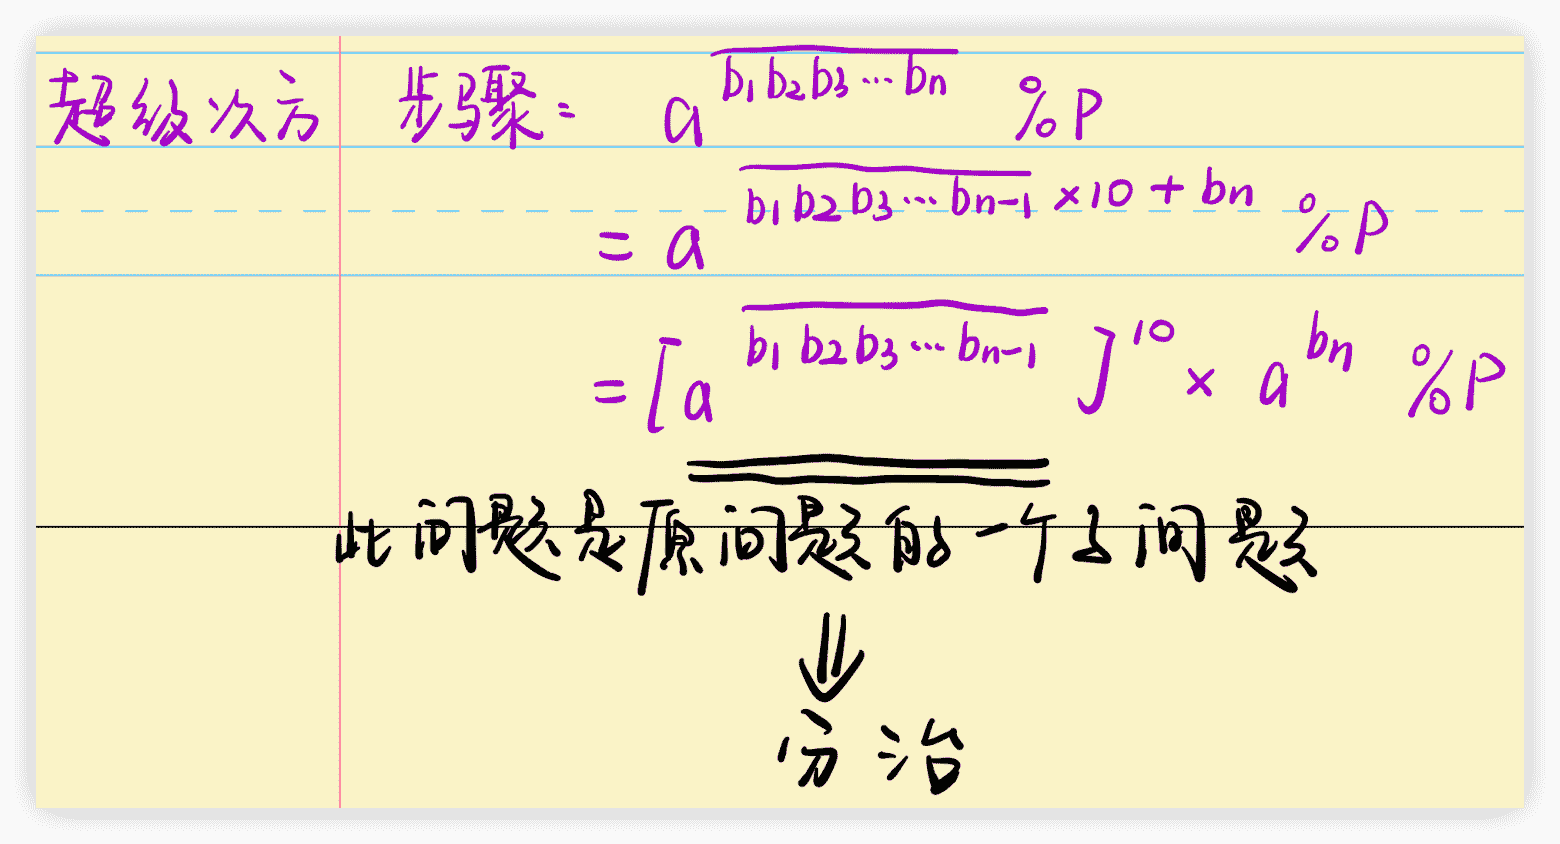 超级次方 步骤: a^{\overline{b_1b_2b_3⋯b_n}} %P
= a^{\overline{b_1b_2b_3⋯b_{n-1}}×10+b_n} %P
= [a^{\overline{b_1b_2b_3⋯b_{n-1}}}]^{10} × a^{b_n} %P
此问题是原问题的一个子问题
⇓
分治